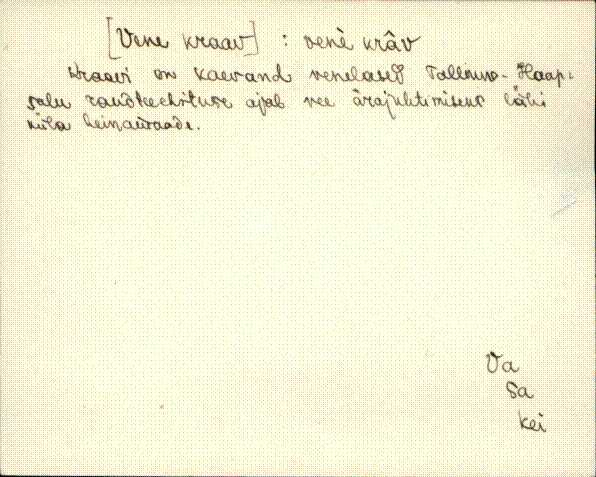 [Vene kraav] : venè krâv
Kraavi on kaevand venelased Tallinna-Haap-
salu raudtee ehituse ajal vee ärajuhtimiseks läbi
küla heinamaade.
Va
Sa
Kei